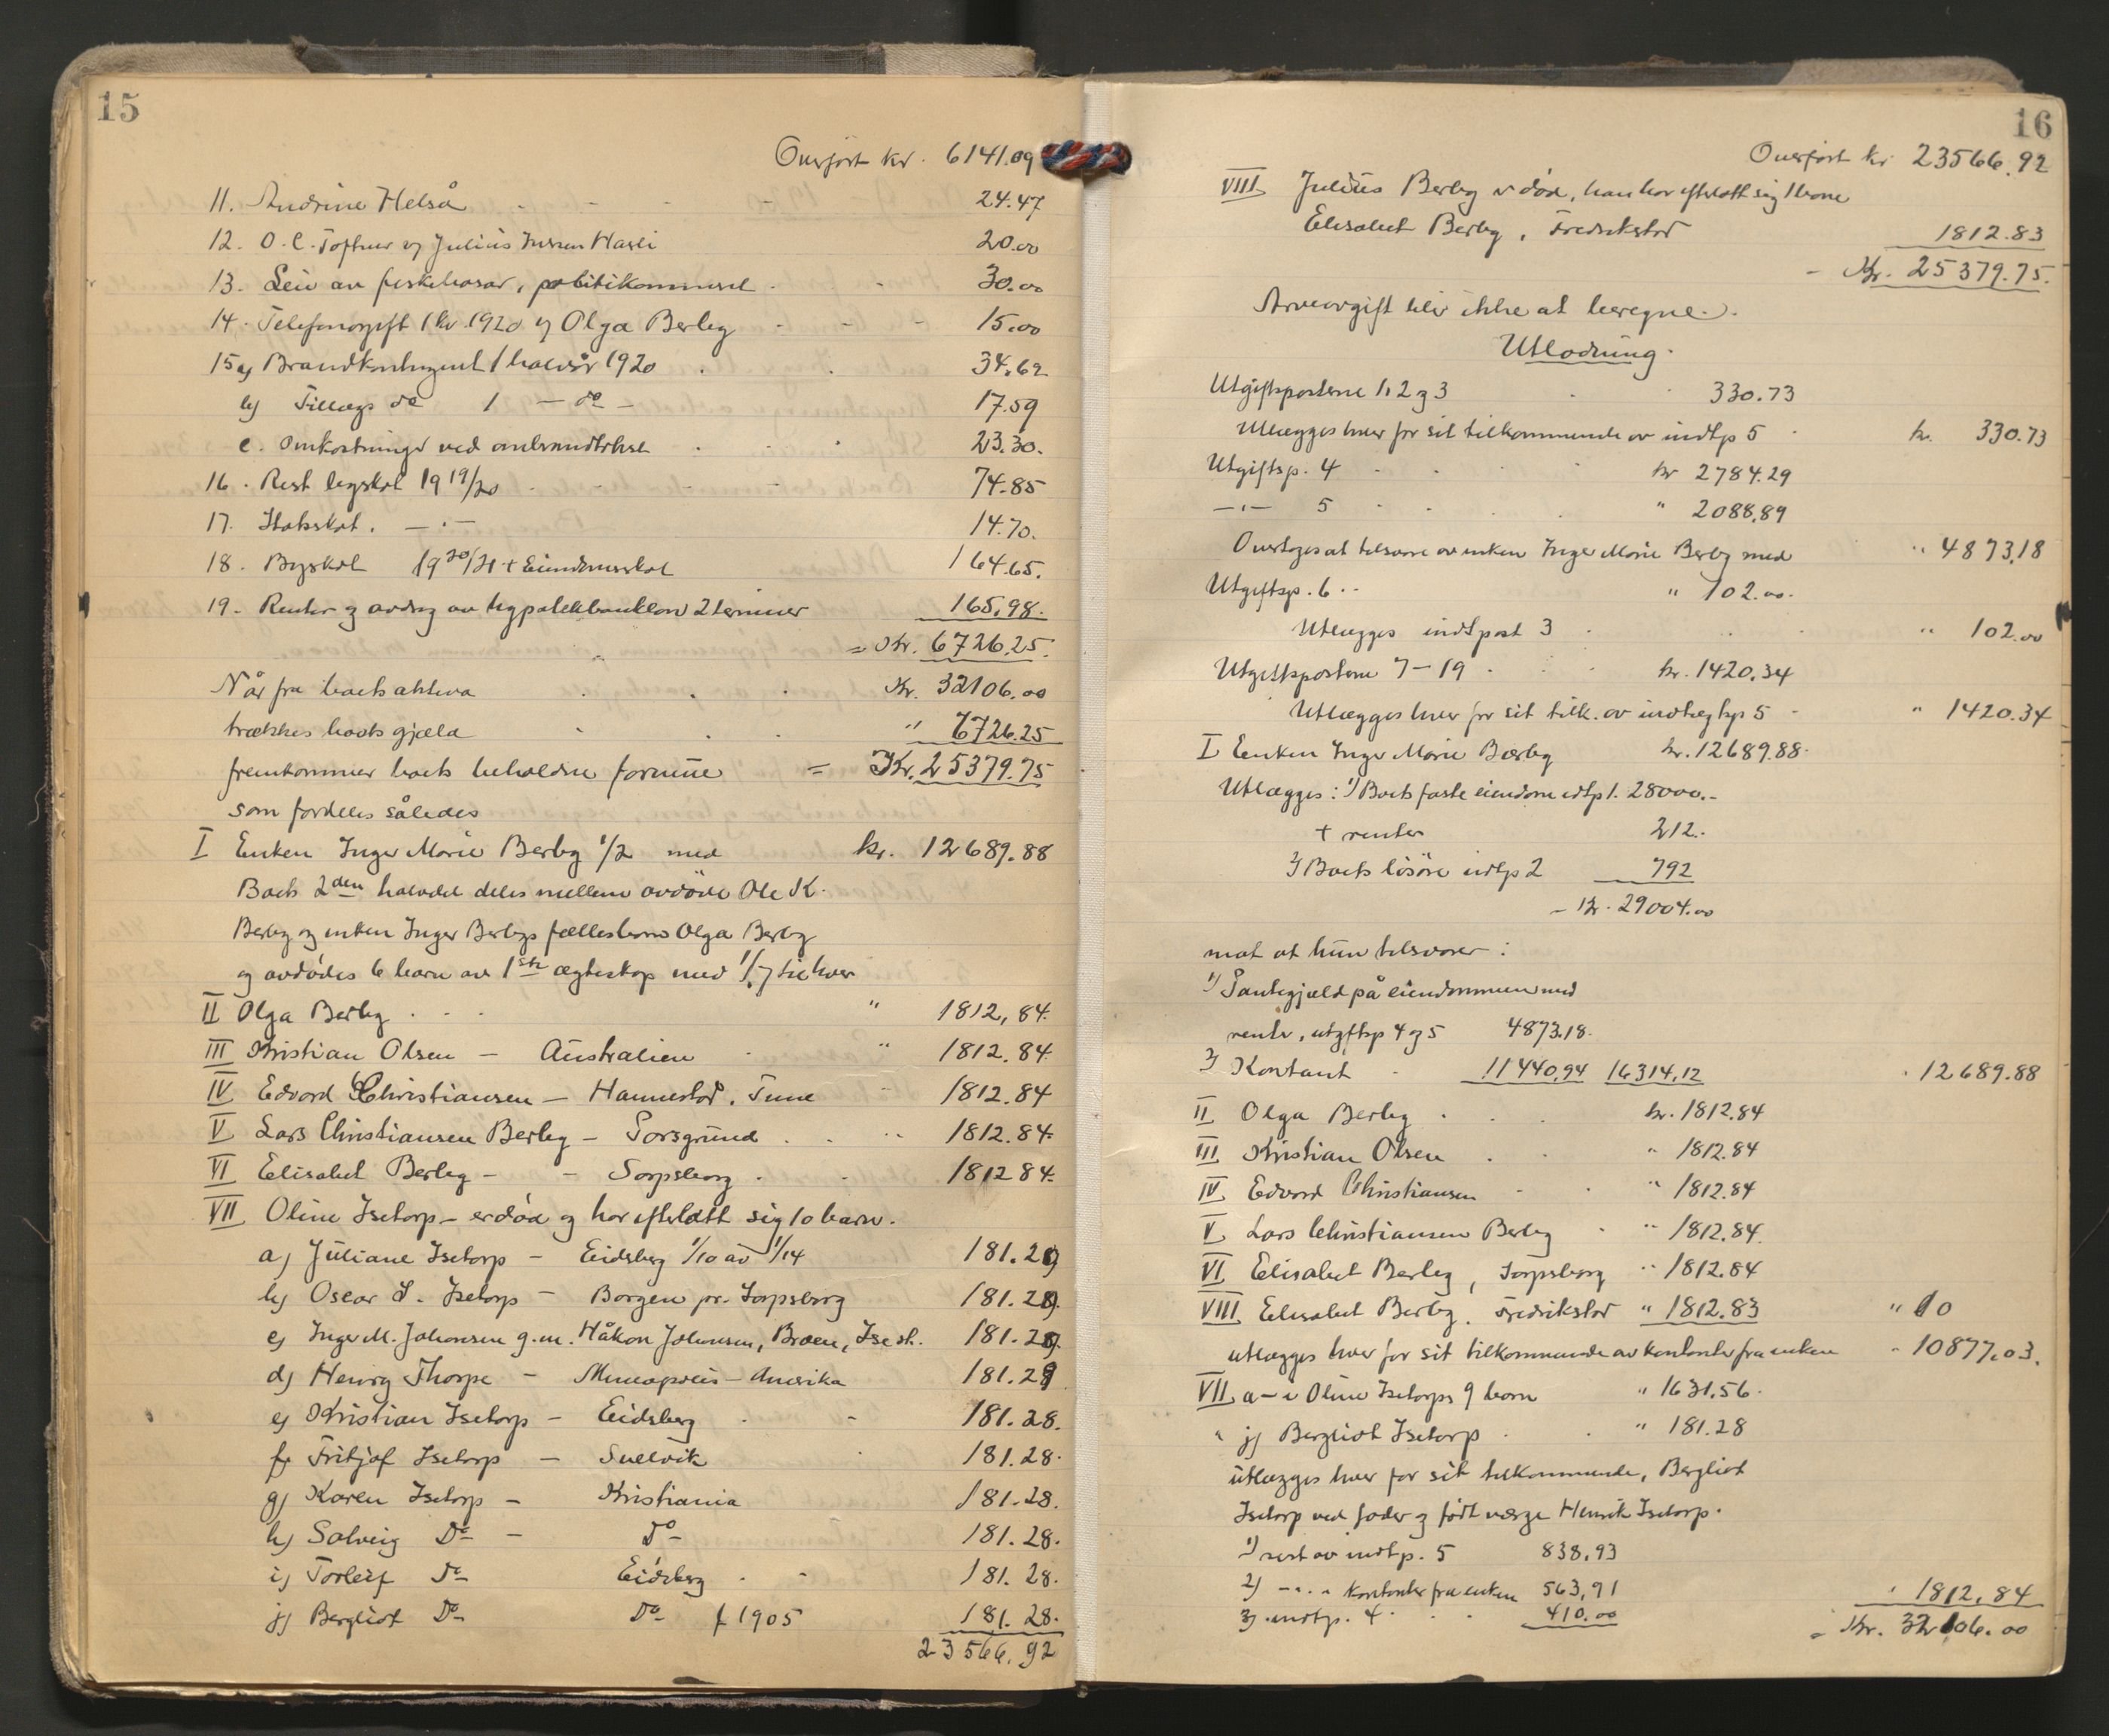 15
Overført kr. 6141.09
11. Andrine Helså - - - - 24.47
12. O. C. Toftner og Julius Jensen Hasli 20.00
13. Leie av fiskebasar, politikammeret - - 30.00
14. Telefonavgift 1 kv. 1920 og Olga Berby - - - 15.00
15 a) Brandkontingent 1 halvår 1920 . . 34.62
b) Tillægs do 1 - do - 17.59
c. Omkostninger ved 23.30.
16. Rest byskat 19 19/20 - - - 74.85
17. Statsskat. - " - 14.70.
18. Byskat 19 20/21 + Eiendomsskat 164.65.
19. Renter og avdrag av hypotekbanklån 2 terminer 165.98.
= Kr. 6726.25.
Når fra boets aktiva . . . Kr. 32106.00
trækkes boets gjæld . . . " 6726.25
fremkommer boets beholdne formue = Kr. 25379.75
som fordeles således
I Enken Inger Marie Berby 1/2 med kr. 12689.88
Boets 2den halvdel deles mellem avdøde Ole K.
Berby og enken Inger Berbys fællesbarn Olga Berby
og avdødes 6 barn av 1ste ægteskap med 1/7 til hver
II Olga Berby . . . " 1812,84.
III Kristian Olsen - Australien . " 1812.84
IV Edvard Christiansen - Hannestad, Tune - 1812.84
V Lars Christiansen Berby - Porsgrund . . " 1812.84.
VI Elisabet Berby - - Sarpsborg . - 1812 84.
VII Oline Isetorp - er død og har efterlatt sig 10 barn.
a) Juliane Isetorp - Eidsberg 1/10 av 1/14 181.29
b) Oscar I. Isetorp - Borgen pr. Sarpsborg 181.29.
c) Inger M. Johansen g.m. Håkon Johansen, Braen, Ise st. 181.29.
d) Henry Thorpe - Minneapolis - Amerika 181.29
e) Kristian Isetorp - Eidsberg . - 181.28.
f. Fritjof Isetorp - Svelvik . 181.28.
g) Karen Isetorp - Kristiania 181.28.
h) Solveig Do - Do 181.28.
i) Torleif Do Eidsberg . - 181.28.
j) Bergliot Do Do f 1905 181.28.
23566.92
16
Overført kr 23566.92
VIII Julius Berby er død, han har efterlatt sig 1 barn
Elisabet Berby, Fredrikstad 1812.83
- Kr. 25379.75.
Arveavgift blir ikke at beregne.
Utlodning.
Utgiftsposterne 1, 2 og 3 . . 330.73
Utlægges hver for sit tilkommende av indtp 5 . kr. 330.73
Utgiftsp. 4 - . . . kr 2784.29
- " - 5 . . . . " 2088,89
Overtages at tilsvare av enken Inger Marie Berby med " 4873.18
Utgiftsp. 6 .. " 102.00.
Utlægges indt post 3 . . . " 102.00
Utgiftsposterne 7 - 19 . . . kr. 1420.34
Utlægges hver for sit tilk. av indtægtsp 5 - " 1420.34
I Enken Inger Marie Berby kr. 12689.88.
Utlægges: 1) Boets faste eiendom indtp 1. 28000.-
+ renter 212.-
2) Boets løsøre indtp 2 792
= Kr. 29004.00
mot at hun tilsvarer :
1) Pantegjæld på eiendommen med
renter, utgiftsp 4 og 5 4873.18.
2) Kontant - 11440,94 16314,12 . 12689.88
II Olga Berby . . . kr. 1812.84
III Kristian Olsen . . " 1812.84
IV Edvard Christiansen - . " 1812.84
V Lars Christiansen Berby . " 1812.84.
VI Elisabet Berby, Sarpsborg " 1812.84
VIII Elisabet Berby. Fredrikstad " 1812.83 " 10
utlægges hver for sit tilkommende av kontanter fra enken - 10877.03.
VII a - i Oline Isetorps 9 barn " 1631.56.
" j) Bergliot Isetorp . . " 181.28
utlægges hver for sit tilkommende, Bergliot
Isetorp ved fader og født værge Henrik Isetorp.
1) rest av indtp. 5 838,93
2) - " - kontanter fra enken 563,91
3) indtp. 4 . . . 410.00 " 1812,84
= Kr. 32106.00